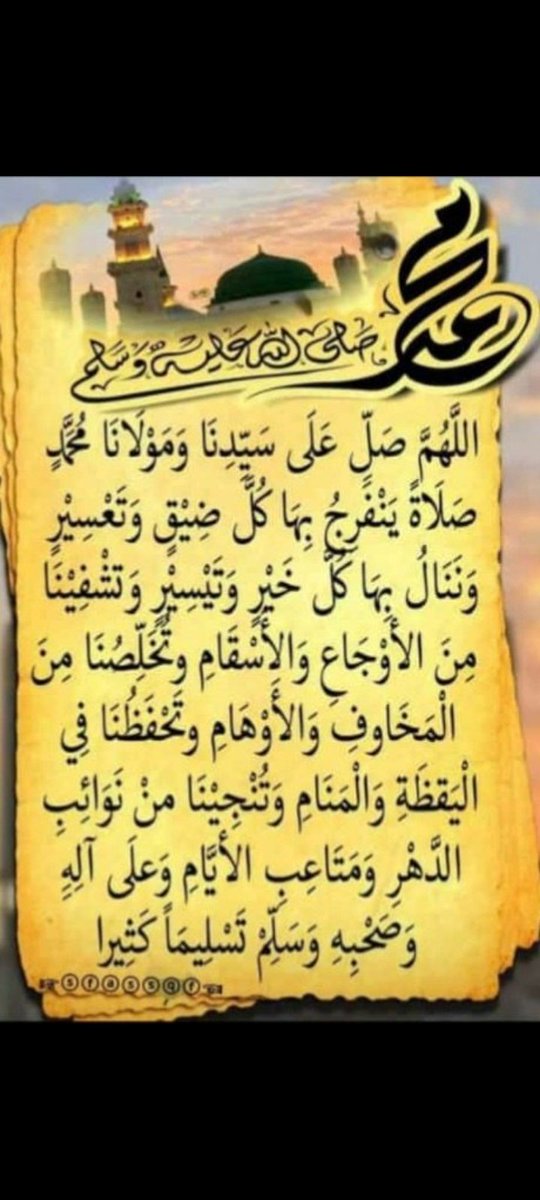 محمد
صلى الله عليه وسلم
اللَّهُمَّ صَلِّ عَلَى سَيِّدِنَا وَمَوْلَانَا مُحَمَّدٍ
صَلَاةً يَنْفَرِجُ بِهَا كُلُّ ضِيْقٍ وَتَعْسِيْرٍ
وَنَنَالُ بِهَا كُلَّ خَيْرٍ وَتَيْسِيْرٍ وَتَشْفِيْنَا
مِنَ الأَوْجَاعِ وَالأَسْقَامِ وتُخَلِّصُنَا مِنَ
الْمَخَاوفِ وَالأَوْهَامِ وتَحْفَظُنَا فِي
الْيَقظَةِ وَالْمَنَامِ وَتُنْجِيْنَا منْ نَوَائِبِ
الدَّهْرِ وَمَتَاعِبِ الأَيَّامِ وَعَلَى آلِهِ
وَصَحْبِهِ وَسَلِّمْ تَسْلِيمَاً كَثِيرا